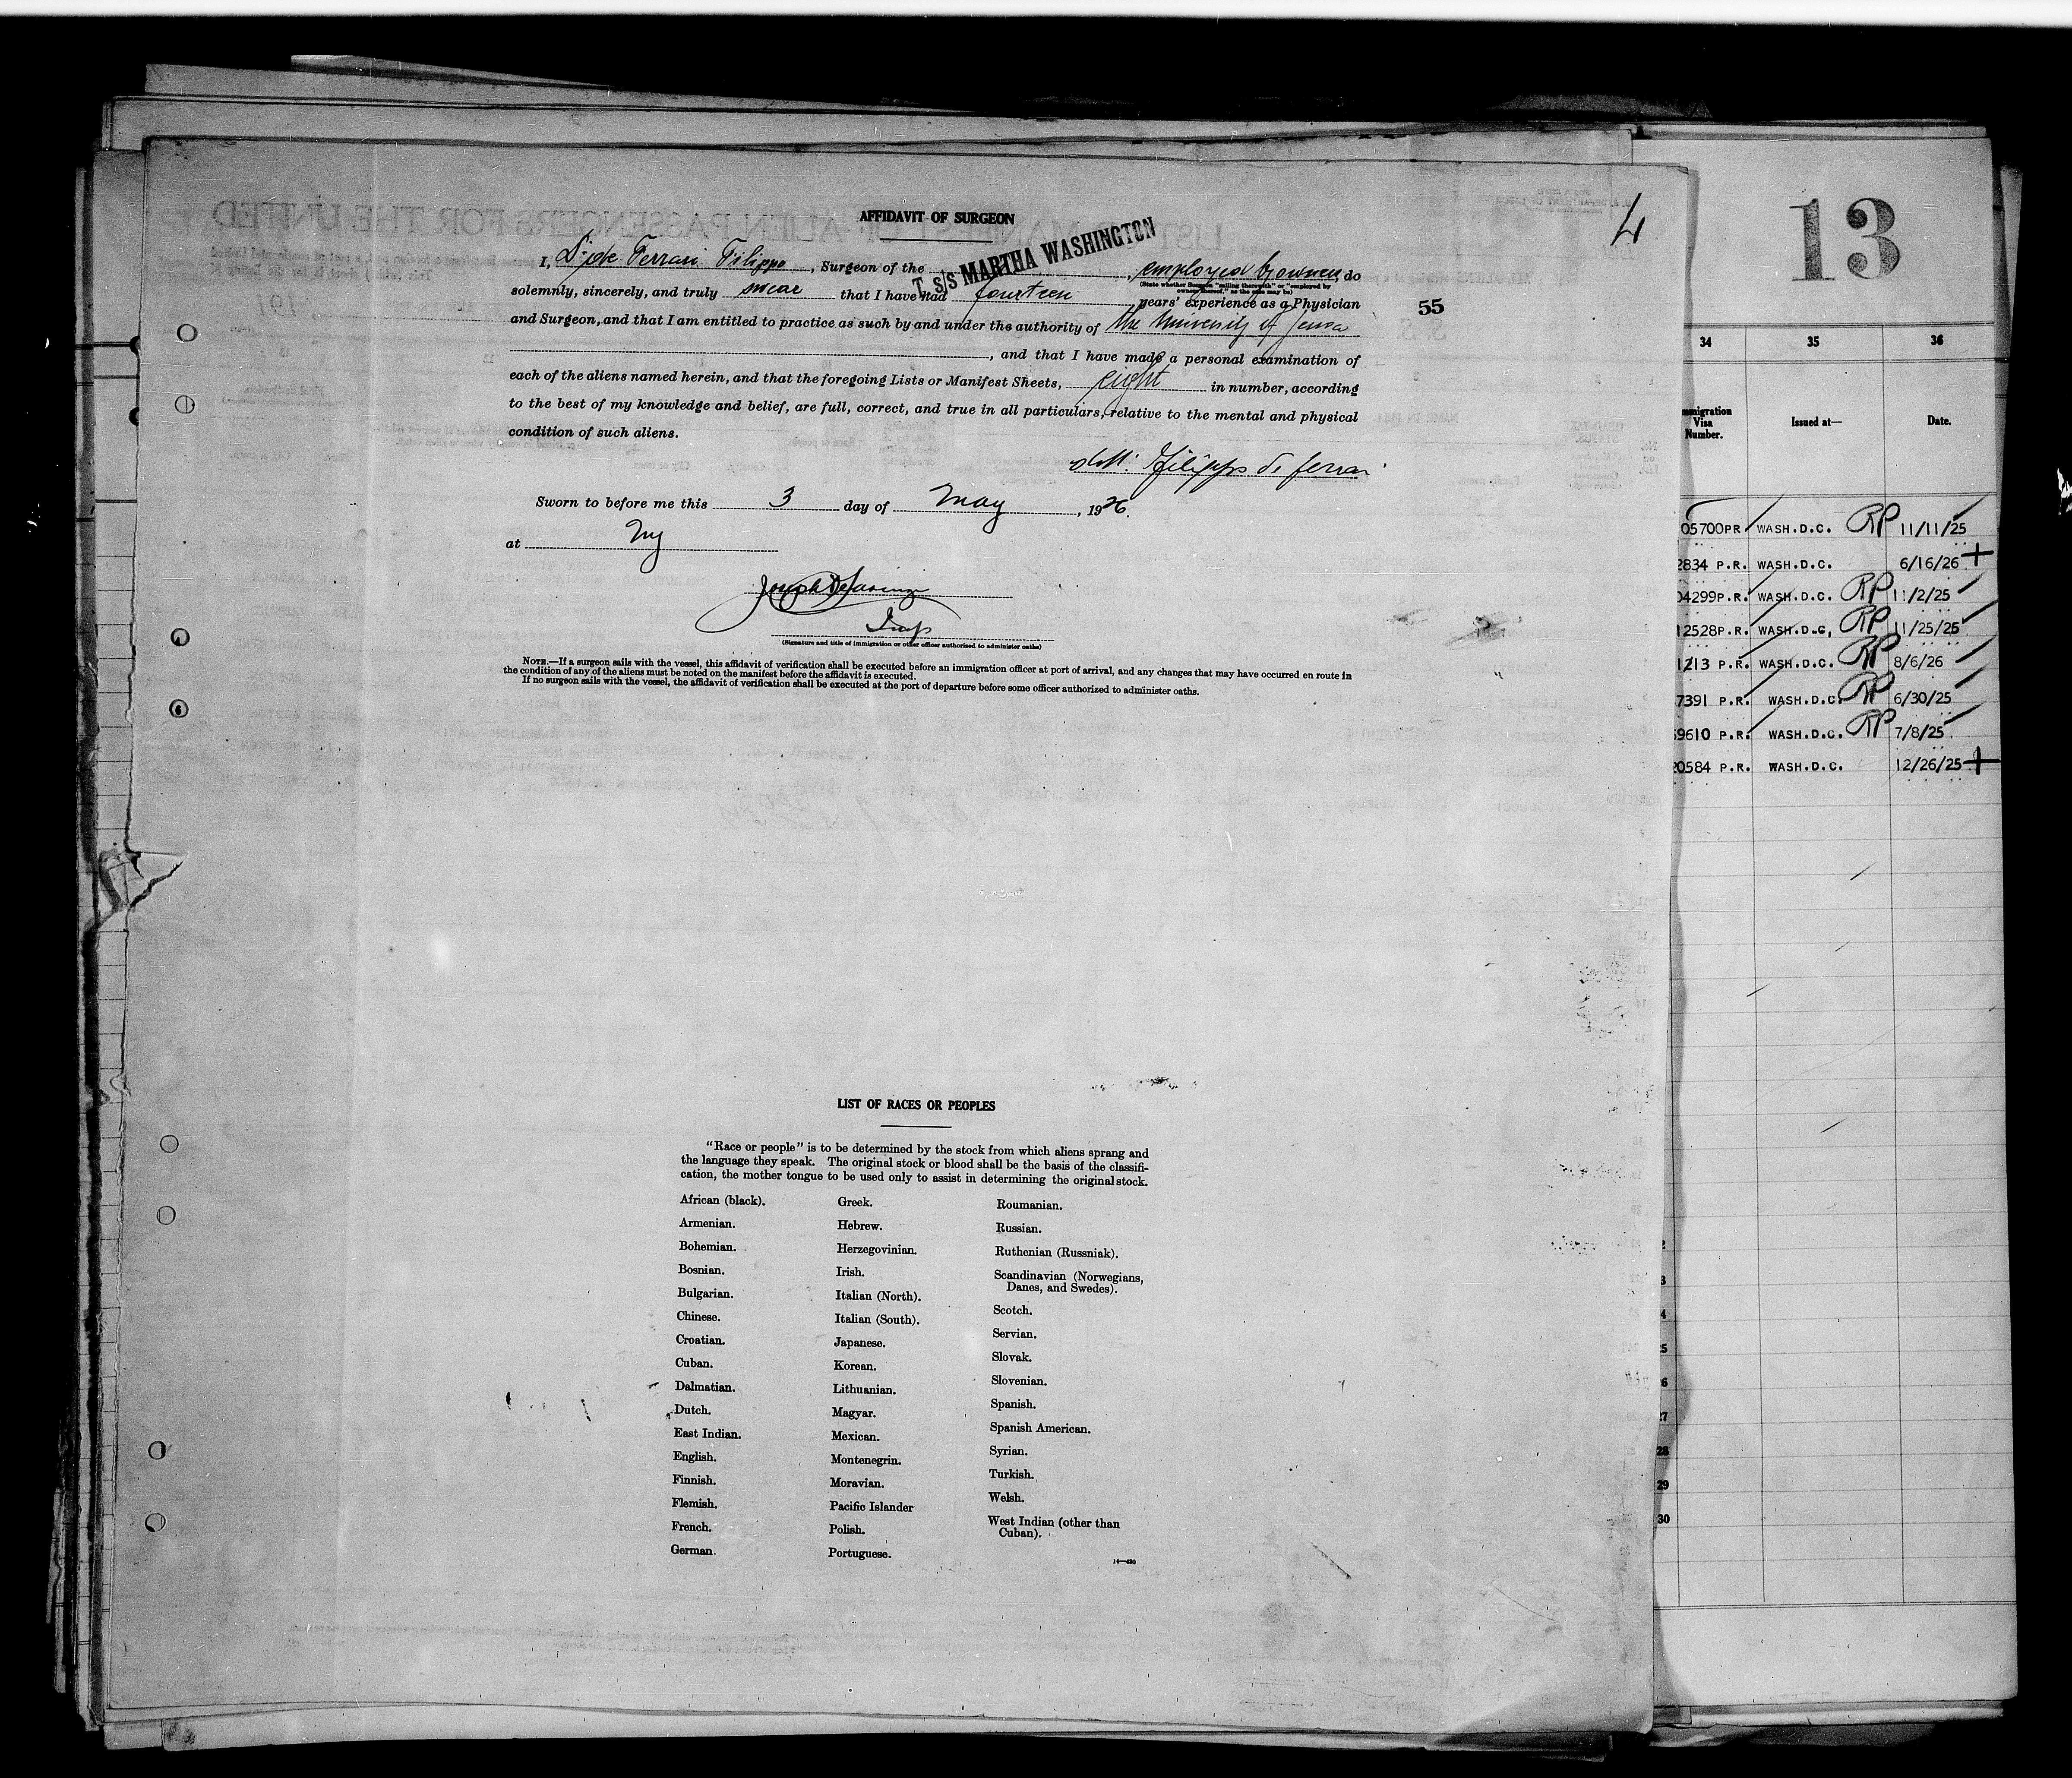 4
13
AFFIDAVIT OF SURGEON
I, Dr de Ferrari Filippo, Surgeon of the T. S/S MARTHA WASHINGTON, employed by owners, do
(State whether Surgeon "sailing therewith" or "employed by
owners thereof," as the case may be)
solemnly, sincerely, and truly swear that I have had fourteen years' experience as a Physician
55
and Surgeon, and that I am entitled to practice as such by and under the authority of the University of Genoa
, and that I have made a personal examination of
each of the aliens named herein, and that the foregoing Lists or Manifest Sheets, eight in number, according
to the best of my knowledge and belief, are full, correct, and true in all particulars, relative to the mental and physical
condition of such aliens.
dott. Filippo de Ferrari
Sworn to before me this 3 day of May, 1926.
at Ny
Insp
(Signature and title of immigration or other officer authorized to administer oaths)
NOTE.—If a surgeon sails with the vessel, this affidavit of verification shall be executed before an immigration officer at port of arrival, and any changes that may have occurred en route in
the condition of any of the aliens must be noted on the manifest before the affidavit is executed.
If no surgeon sails with the vessel, the affidavit of verification shall be executed at the port of departure before some officer authorized to administer oaths.
LIST OF RACES OR PEOPLES
"Race or people" is to be determined by the stock from which aliens sprang and
the language they speak. The original stock or blood shall be the basis of the classifi-
cation, the mother tongue to be used only to assist in determining the original stock.
African (black).
Armenian.
Bohemian.
Bosnian.
Bulgarian.
Chinese.
Croatian.
Cuban.
Dalmatian.
Dutch.
East Indian.
English.
Finnish.
Flemish.
French.
German.
Greek.
Hebrew.
Herzegovinian.
Irish.
Italian (North).
Italian (South).
Japanese.
Korean.
Lithuanian.
Magyar.
Mexican.
Montenegrin.
Moravian.
Pacific Islander
Polish.
Portuguese.
Roumanian.
Russian.
Ruthenian (Russniak).
Scandinavian (Norwegians,
Danes, and Swedes).
Scotch.
Servian.
Slovak.
Slovenian.
Spanish.
Spanish American.
Syrian.
Turkish.
Welsh.
West Indian (other than
Cuban).
34 35 36
Visa
Number.
Issued at—
Date.
05700PR WASH.D.C. RP 11/11/25
2834 P.R. WASH.D.C. 6/16/26 +
04299P.R. WASH.D.C. RP 11/2/25
12528P.R. WASH.D.C, RP 11/25/25
1213 P.R. WASH.D.C. RP 8/6/26
7391 P.R. WASH.D.C. RP 6/30/25
9610 P.R. WASH.D.C. RP 7/8/25
20584 P.R. WASH.D.C. 12/26/25 +
28
29
30